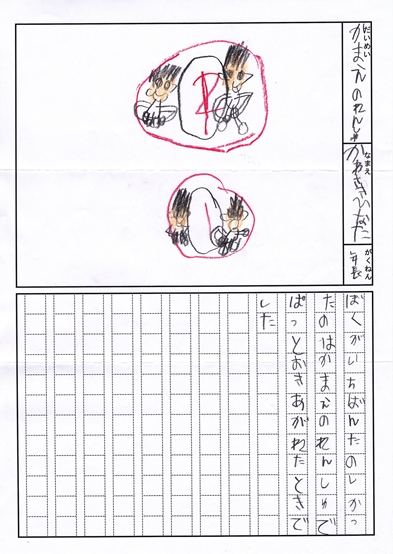 だいめい
かまえのれんしゅ
なまえ
かわさきひなた
がくねん
年長
ぼくがいちばんたのしかっ
たのはかまえのれんしゅで
ぱっとおきあがれたときで
した